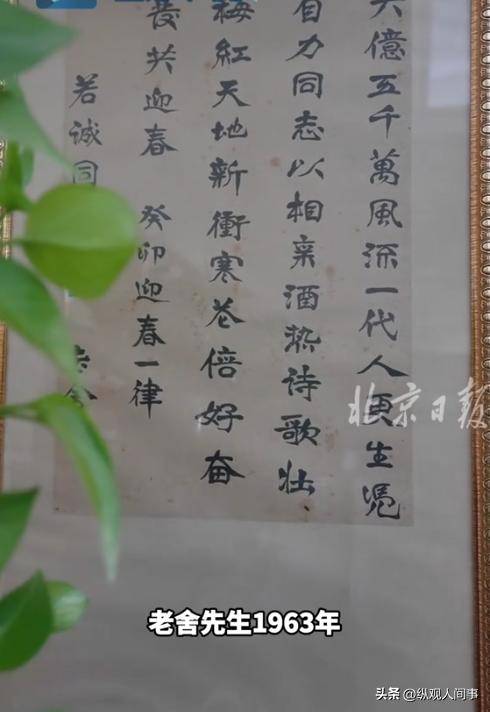 六億五千萬風流一代人更生憑
自力同志以相亲酒热诗歌壮
梅紅天地新衝寒花倍好奋
共迎春 癸卯迎春一律
若诚同
北京日报
老舍先生1963年
头条 @纵观人间事